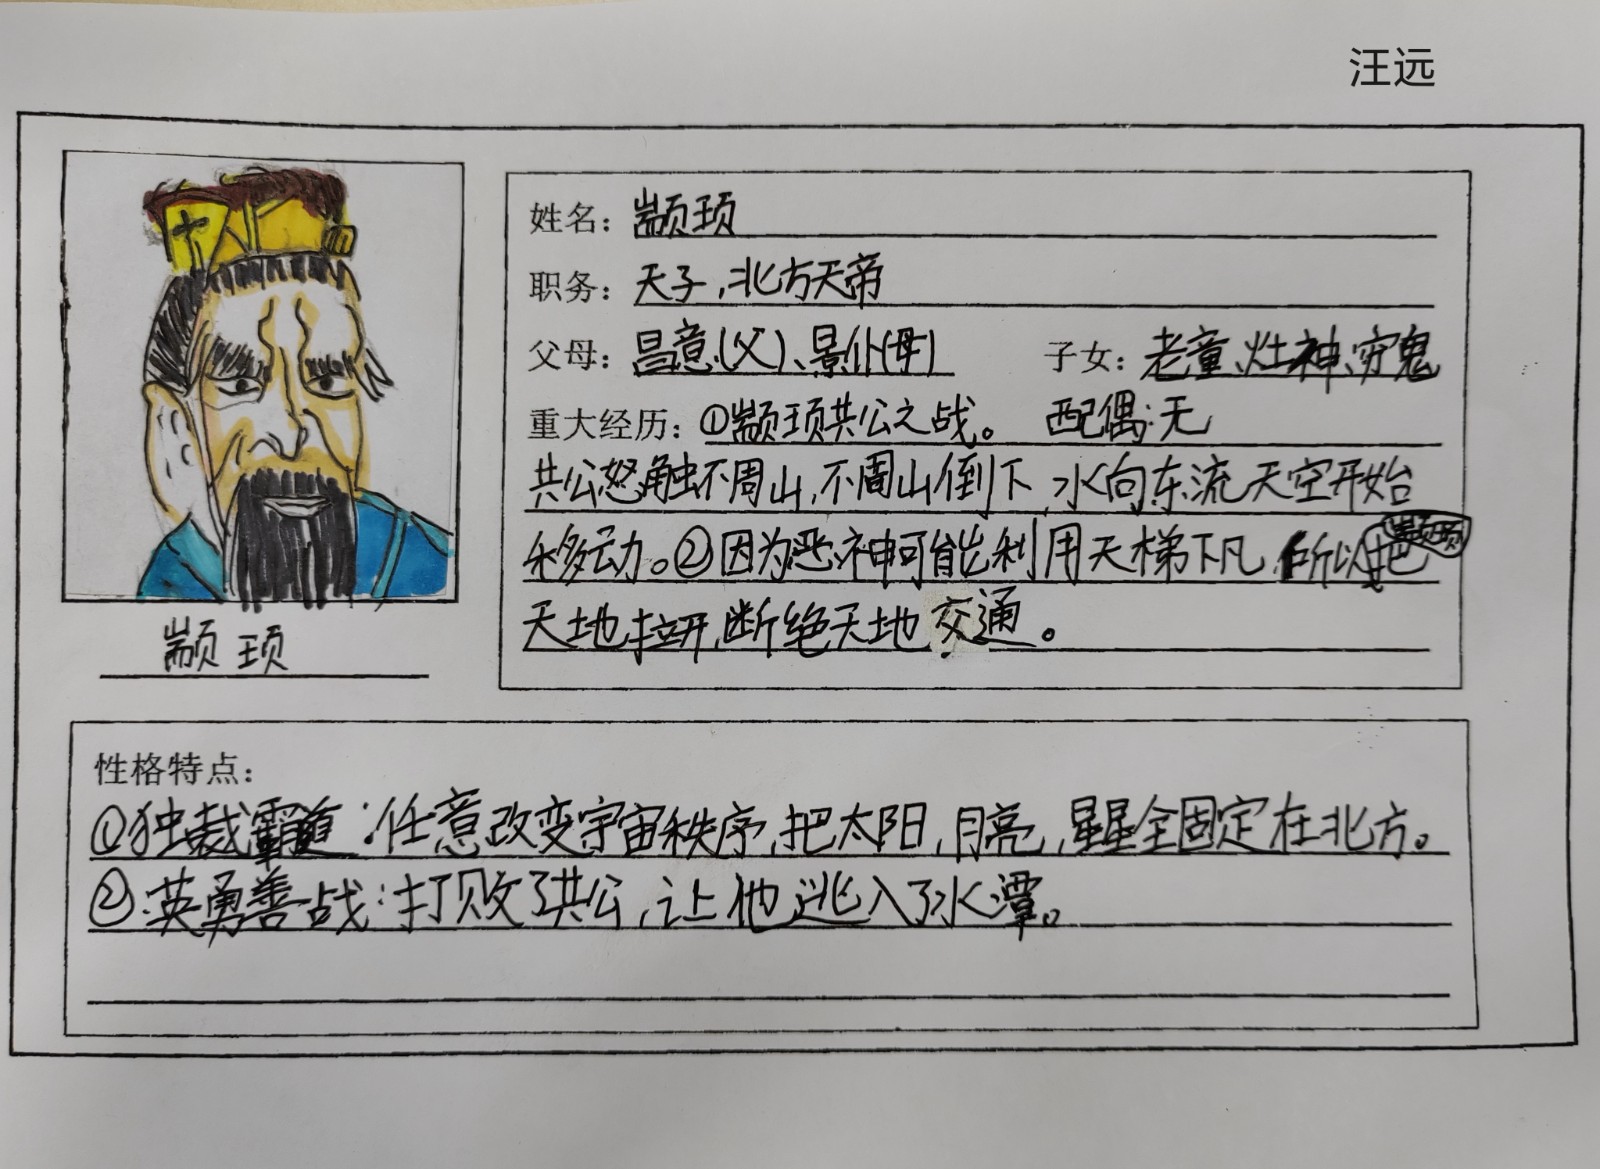 汪远
颛顼
姓名：颛顼
职务：天子，北方天帝
父母：昌意(父)、景仆(母) 子女：老童、灶神、穷鬼
重大经历：①颛顼共公之战。 配偶：无
共公怒触不周山，不周山倒下，水向东流天空开始
移动。②因为恶神可能利用天梯下凡，所以颛顼把
天地拉开，断绝天地交通。
性格特点：
①独裁霸道：任意改变宇宙秩序，把太阳，月亮，星星全固定在北方。
②英勇善战：打败了共公，让他逃入了水潭。